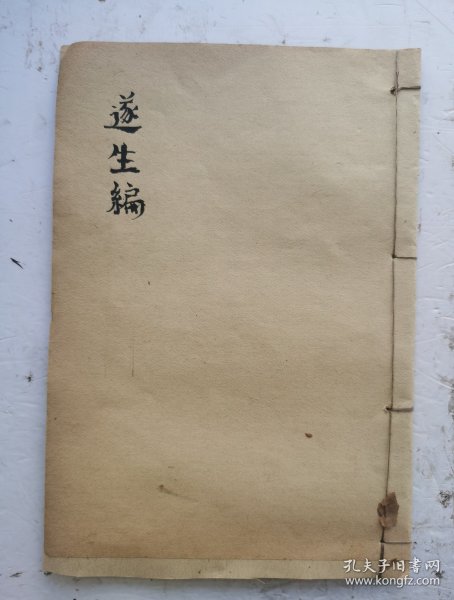 遂生編
孔夫子旧书网
www.kongfz.com